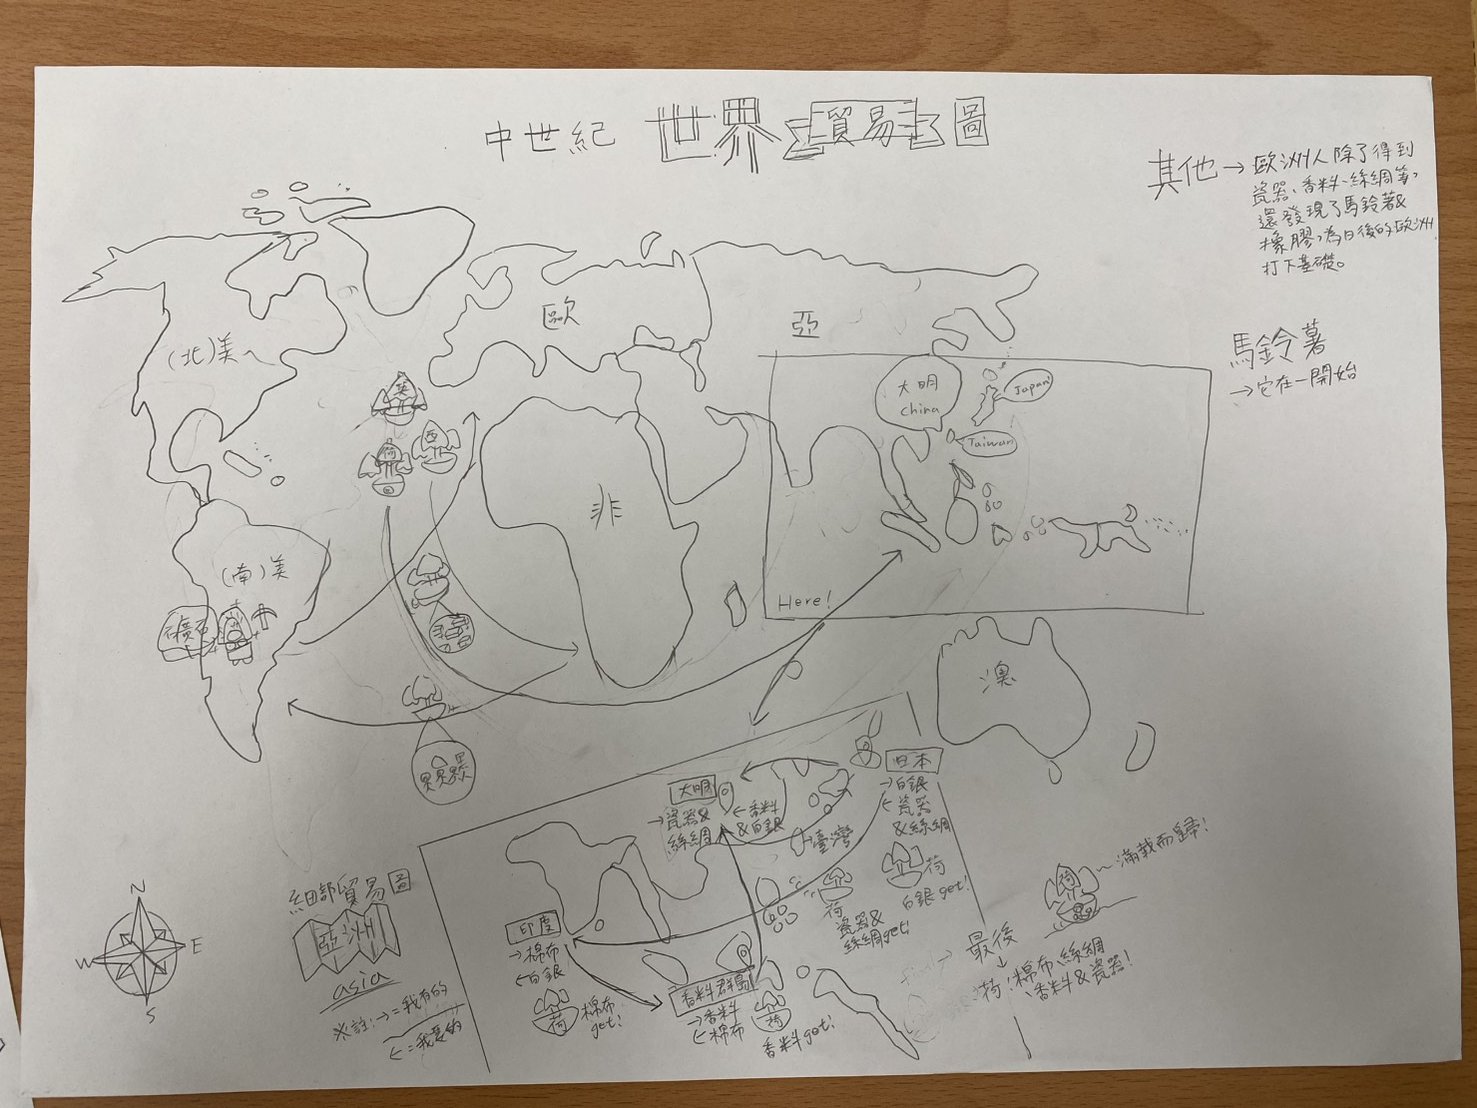 中世紀 世界貿易圖
其他→歐洲人除了得到
瓷器、香料、絲綢等,
還發現了馬鈴薯&
橡膠,為日後的歐洲
打下基礎。
馬鈴薯
→它在一開始
(北)美~
歐
亞
英
荷
西
大明
china
Japan!
Taiwan
非
(南)美
礦石
Here!
澳
黑黑黑
細部貿易圖
亞洲
asia
※註:→=我有的
←=我要的
大明
→瓷器&
絲綢
←香料
&白銀
日本
→白銀
←瓷器
&絲綢
荷
白銀get!
臺灣
荷
瓷器&
絲綢get!
印度
→棉布
←白銀
荷
棉布
get!
香料群島
→香料
←棉布
荷
香料get!
最後
↓
荷:棉布、絲綢
、香料&瓷器!
荷
~滿載而歸!
N
W
E
S